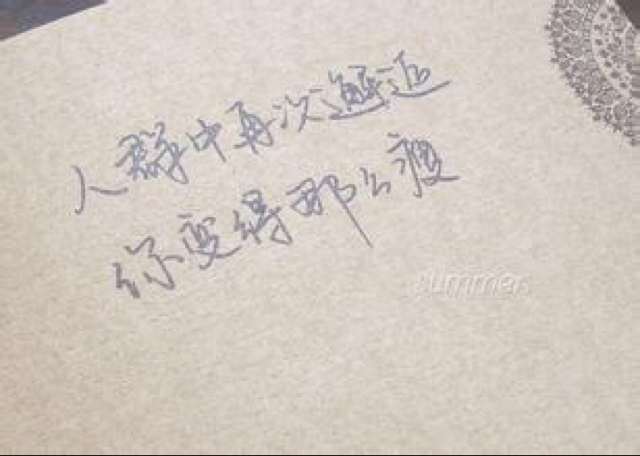 人群中再次邂逅
你变得那么瘦
summer